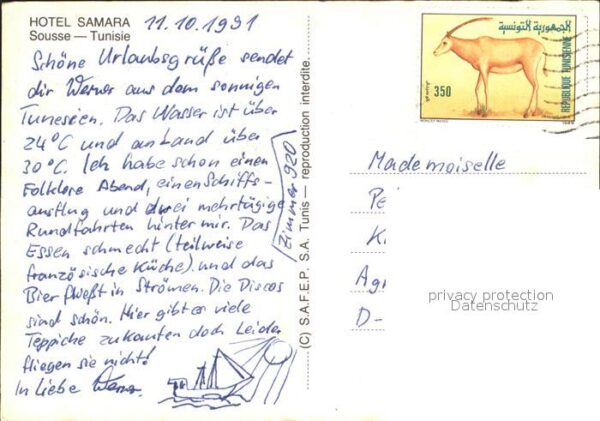 HOTEL SAMARA
Sousse — Tunisie
11.10.1991
Schöne Urlaubsgrüße sendet
dir Werner aus dem sonnigen
Tunesien. Das Wasser ist über
24°C und an Land über
30°C. Ich habe schon einen
Folklore Abend, einen Schiffs-
ausflug und zwei mehrtägige
Rundfahrten hinter mir. Das
Essen schmeckt (teilweise
französische Küche) und das
Bier fließt in Strömen. Die Discos
sind schön. Hier gibt es viele
Teppiche zu kaufen doch Leider
fliegen sie nicht!
In Liebe Werner
Zimmer 920
(C) S.A.F.E.P. S.A. Tunis — reproduction interdite.
الجمهورية التونسية
REPUBLIQUE TUNISIENNE
350
Mademoiselle
Pe
K
Ag
D-
privacy protection
Datenschutz